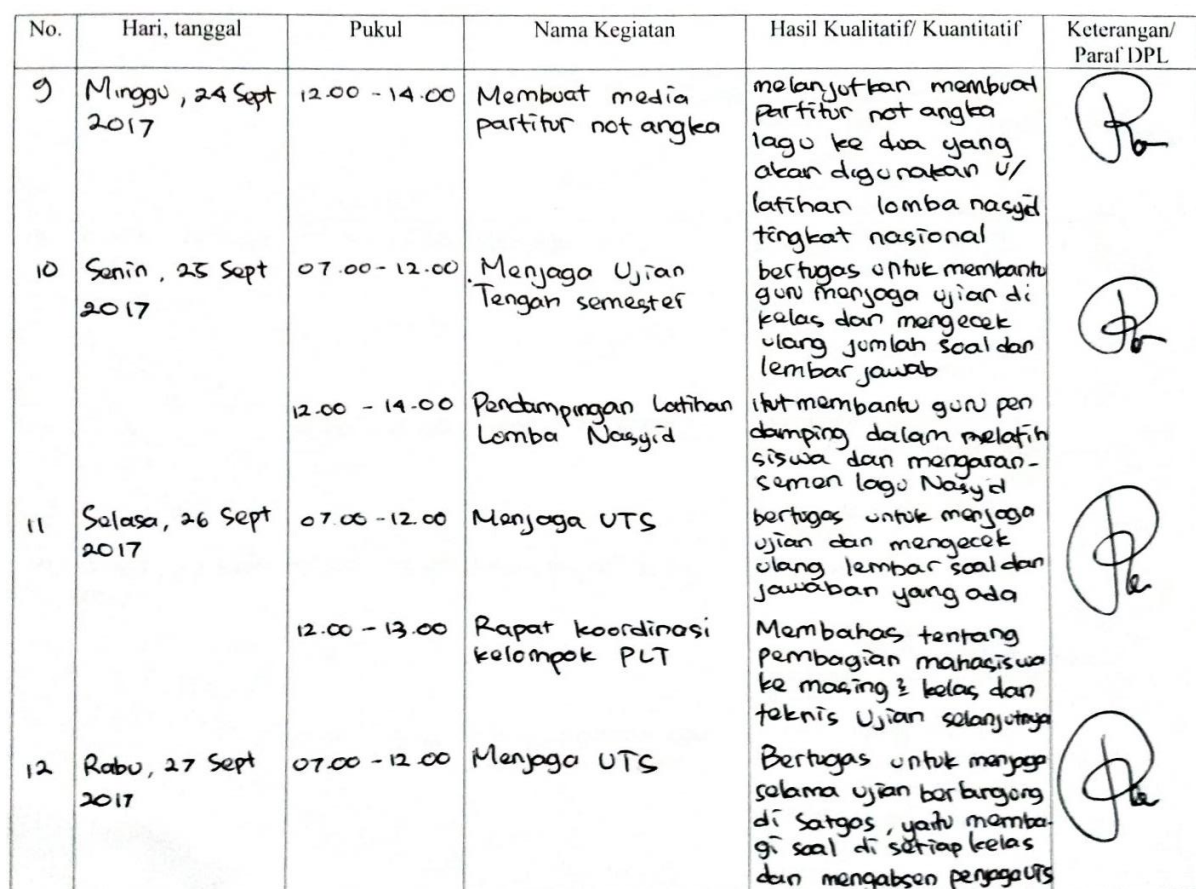 No. Hari, tanggal Pukul Nama Kegiatan Hasil Kualitatif/ Kuantitatif Keterangan/
Paraf DPL
9 Minggu, 24 Sept 12.00 - 14.00 Membuat media melanjutkan membuat
2017 partitur not angka partitur not angka
lagu ke dua yang
akan digunakan u/
latihan lomba nasyid
tingkat nasional
10 Senin, 25 Sept 07.00 - 12.00 Menjaga Ujian bertugas untuk membantu
2017 Tengah semester guru menjaga ujian di
kelas dan mengecek
ulang jumlah soal dan
lembar jawab
12.00 - 14.00 Pendampingan Latihan ikut membantu guru pen
Lomba Nasyid damping dalam melatih
siswa dan mengaran-
semen lagu Nasyid
11 Selasa, 26 Sept 07.00 - 12.00 Menjaga UTS bertugas untuk menjaga
2017 ujian dan mengecek
ulang lembar soal dan
jawaban yang ada
12.00 - 13.00 Rapat koordinasi Membahas tentang
kelompok PLT pembagian mahasiswa
ke masing2 kelas dan
teknis Ujian selanjutnya
12 Rabu, 27 Sept 07.00 - 12.00 Menjaga UTS Bertugas untuk menjaga
2017 selama ujian berlangsung
di Satgas, yaitu memba-
gi soal di setiap kelas
dan mengabsen penjaga UTS